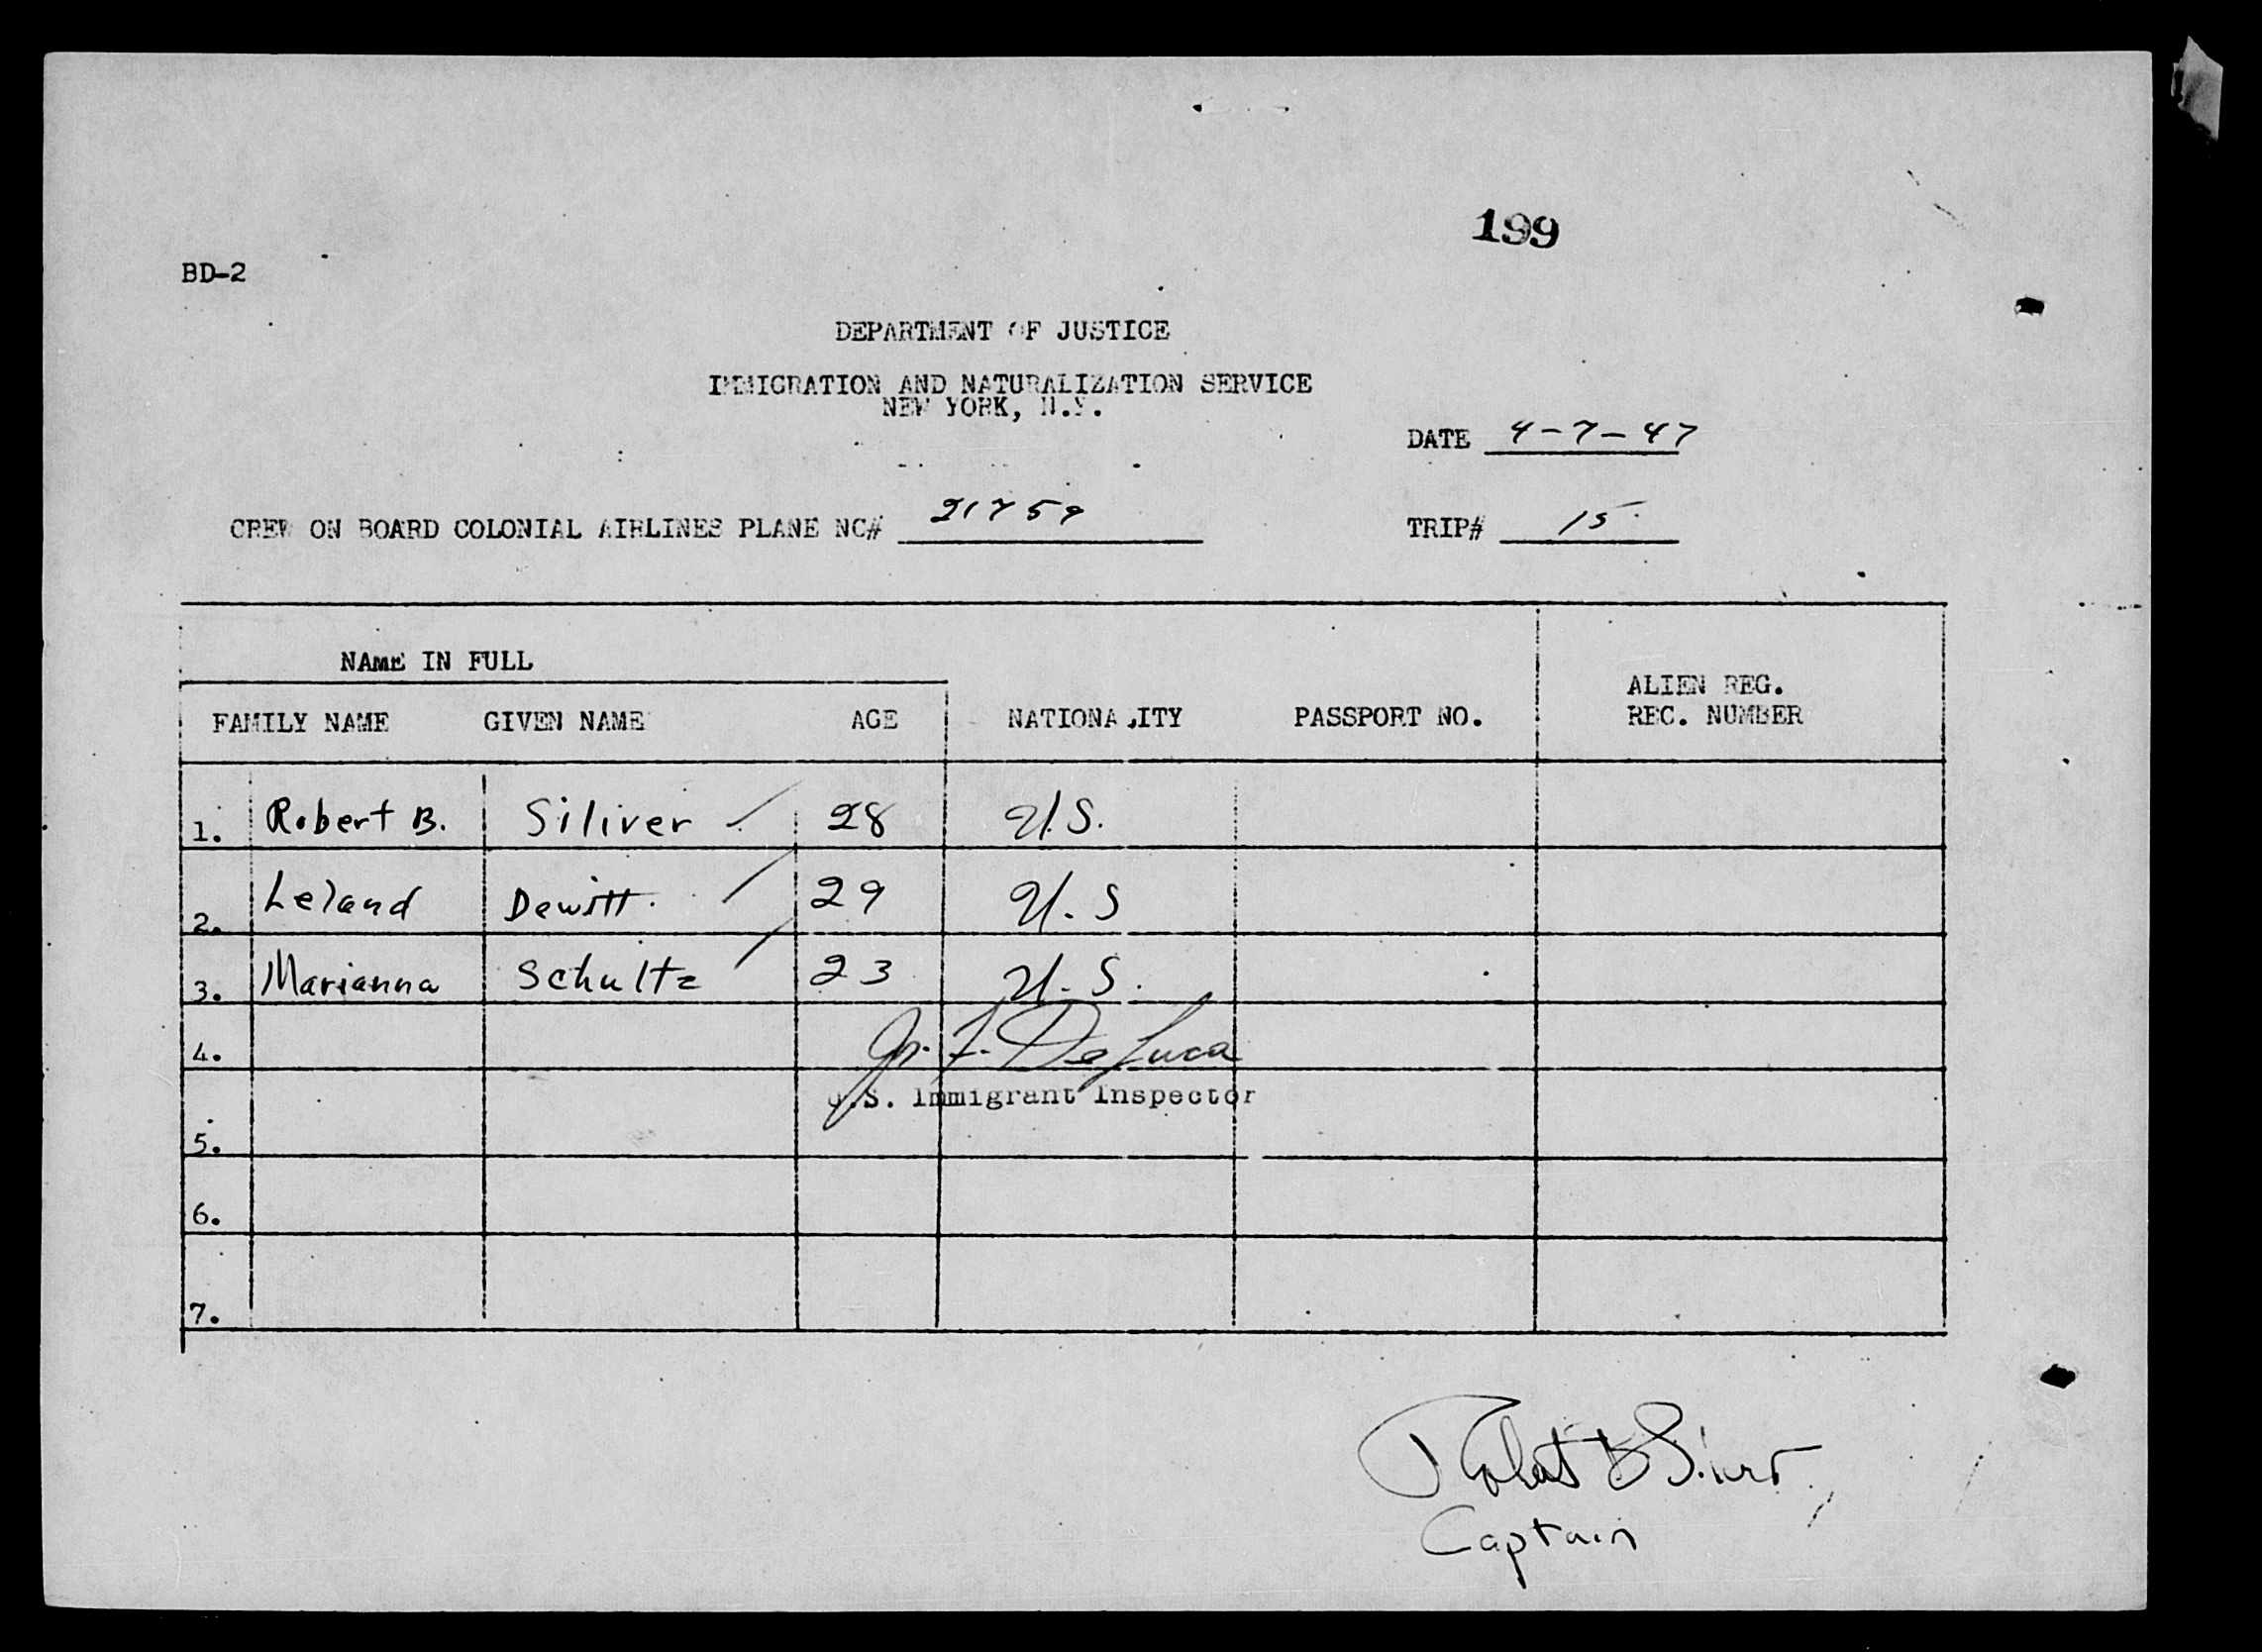 199
BD-2
DEPARTMENT OF JUSTICE
IMMIGRATION AND NATURALIZATION SERVICE
NEW YORK, N.Y.
DATE 4-7-47
CREW ON BOARD COLONIAL AIRLINES PLANE NC# 21759
TRIP# 15
NAME IN FULL
FAMILY NAME GIVEN NAME AGE NATIONALITY PASSPORT NO. ALIEN REG. REC. NUMBER
1. Robert B. Siliver 28 U.S.
2. Leland Dewitt. 29 U.S
3. Marianna Schultz 23 U.S.
4. De Luca
U.S. Immigrant Inspector
5.
6.
7.
Robert B
Captain